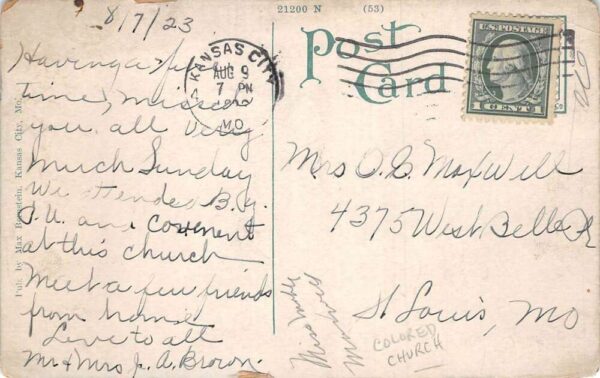 8/7/23
21200 N (53)
Post
Card
KANSAS CITY
AUG 9
7 PM
MO.
U.S. POSTAGE
1 CENT 1
Having a fine
time, missed
you all very
much Sunday
We attended B.Y.
P.U. and Covenent
at this church
Meet a few friends
from home
Love to all
Mr & Mrs J. A. Brown.
Pub. by Max Bernstein, Kansas City, Mo.
Mrs O. G. Maxwell
4375 West Belle Pl
St Louis, Mo
COLORED
CHURCH